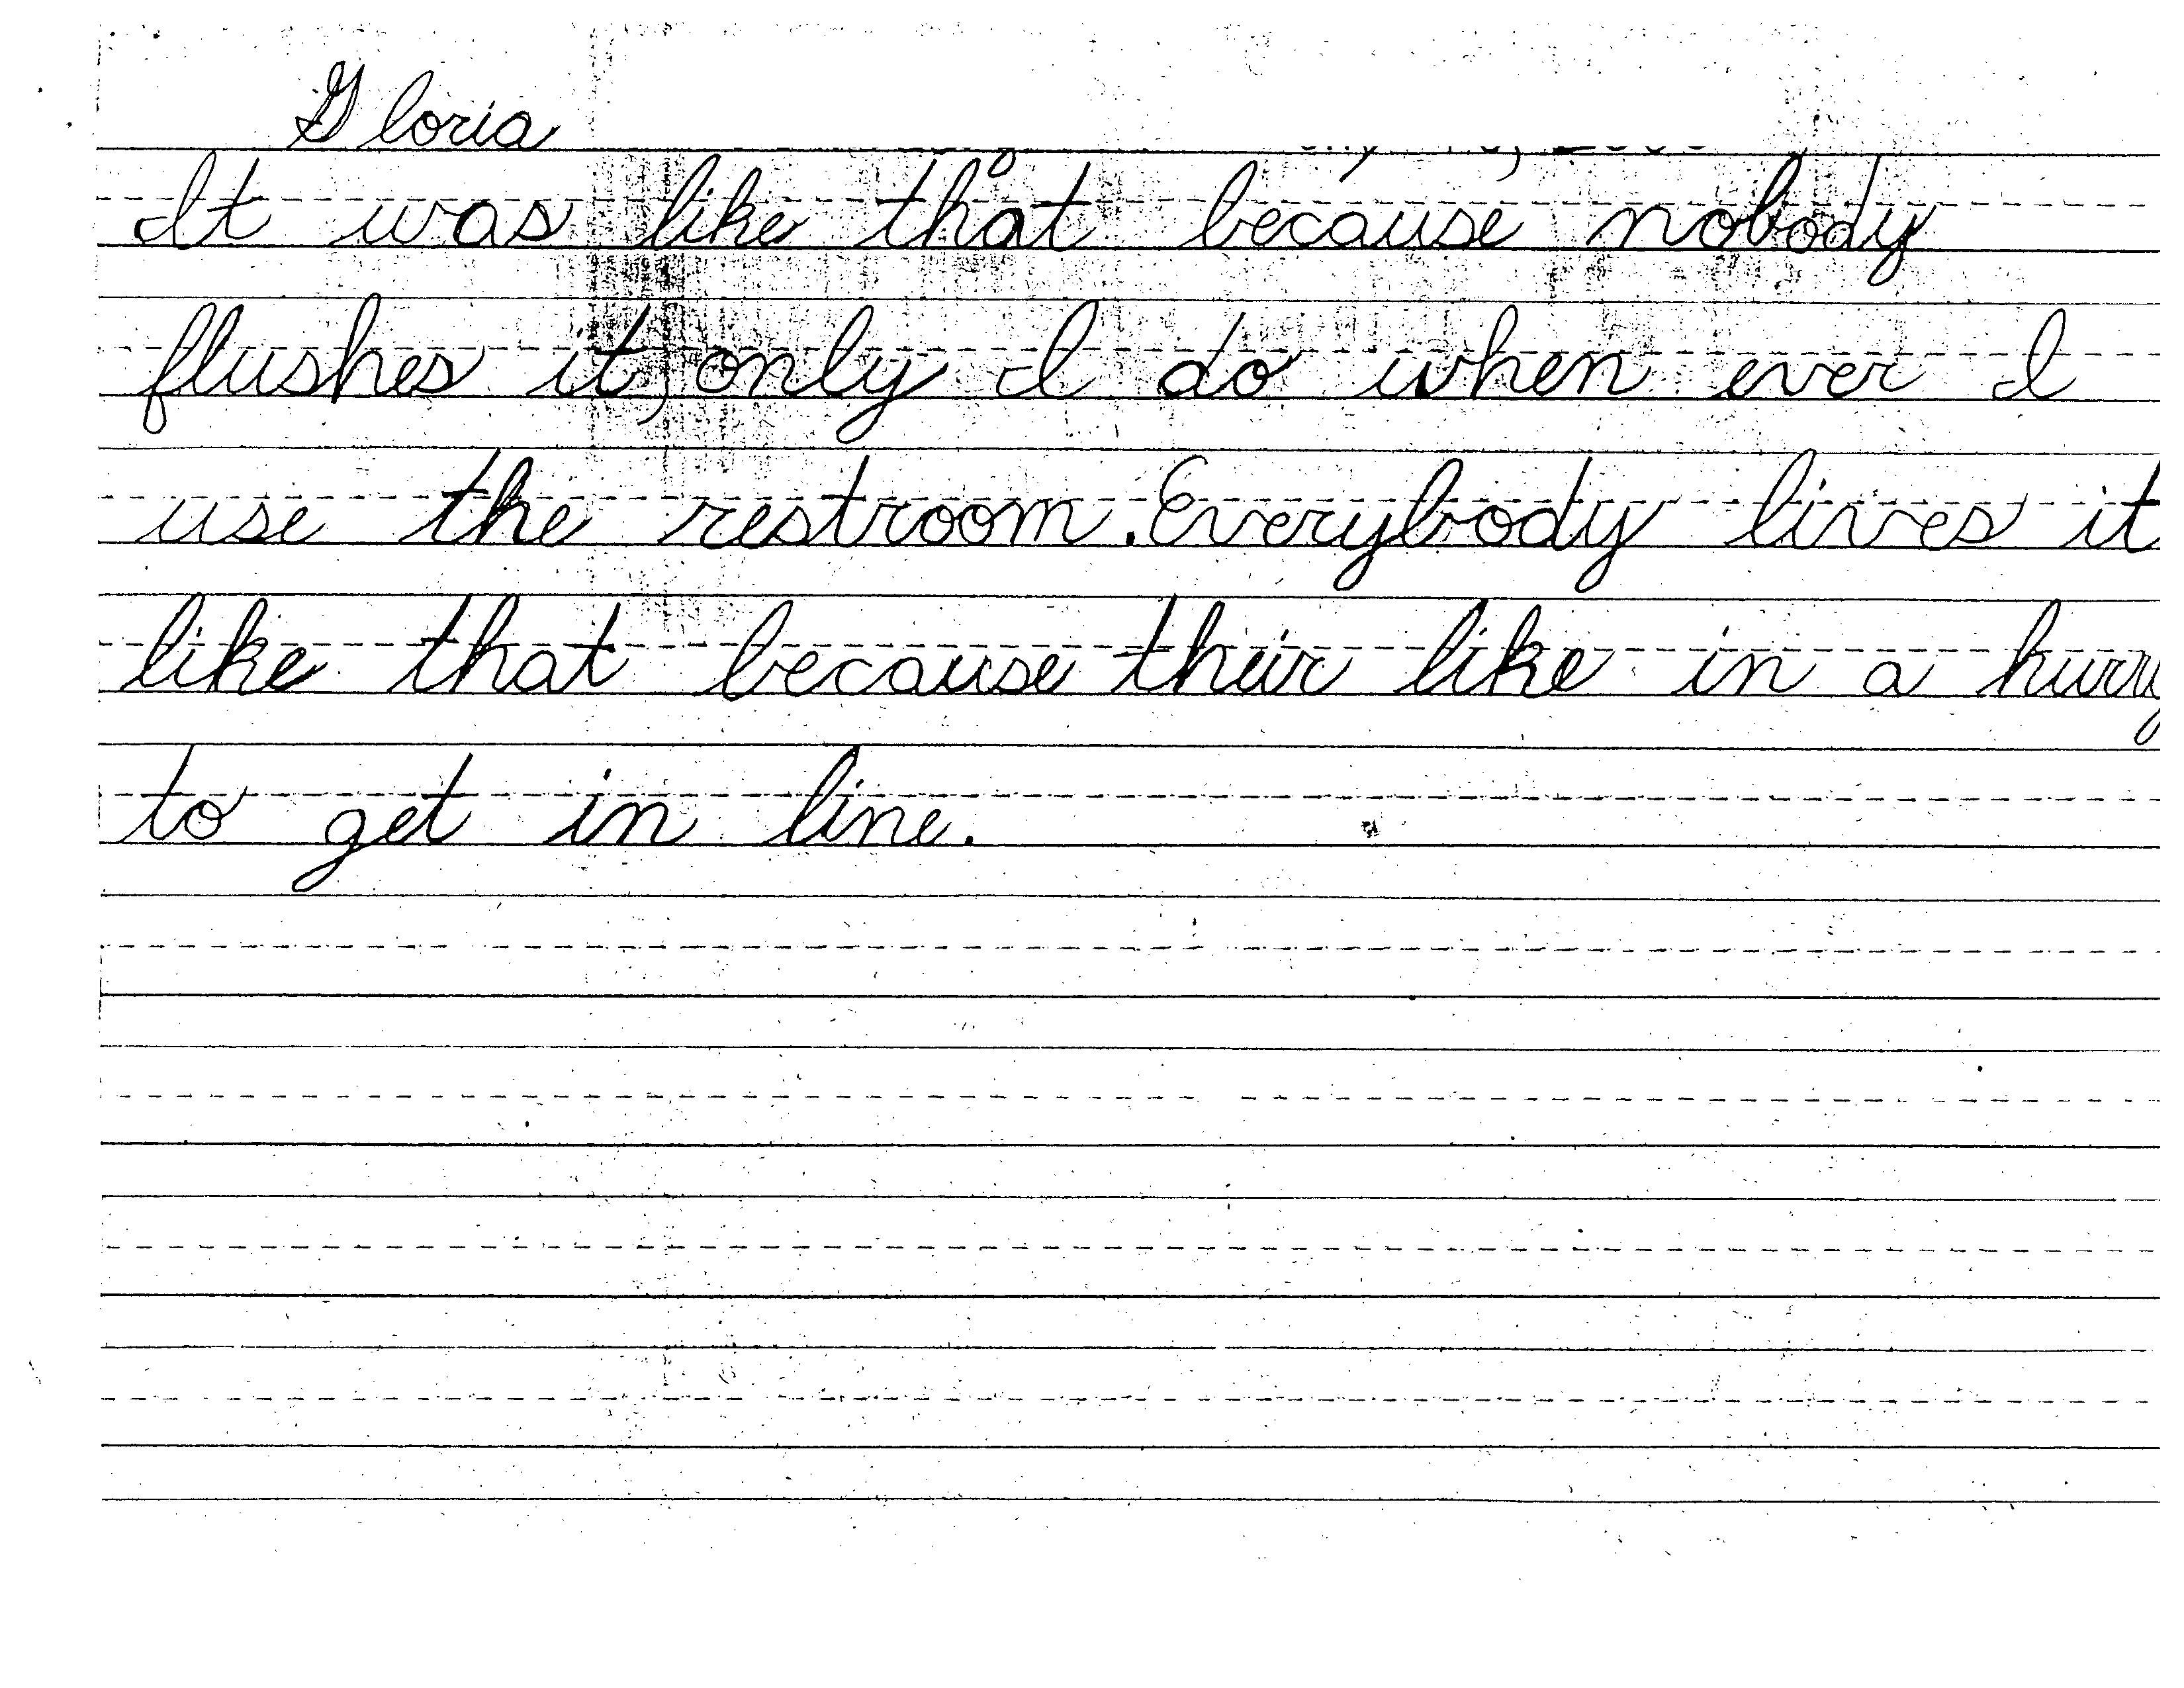 Gloria
It was like that because nobody
flushes it, only I do when ever I
use the restroom. Everybody lives it
like that because their like in a hurry
to get in line.